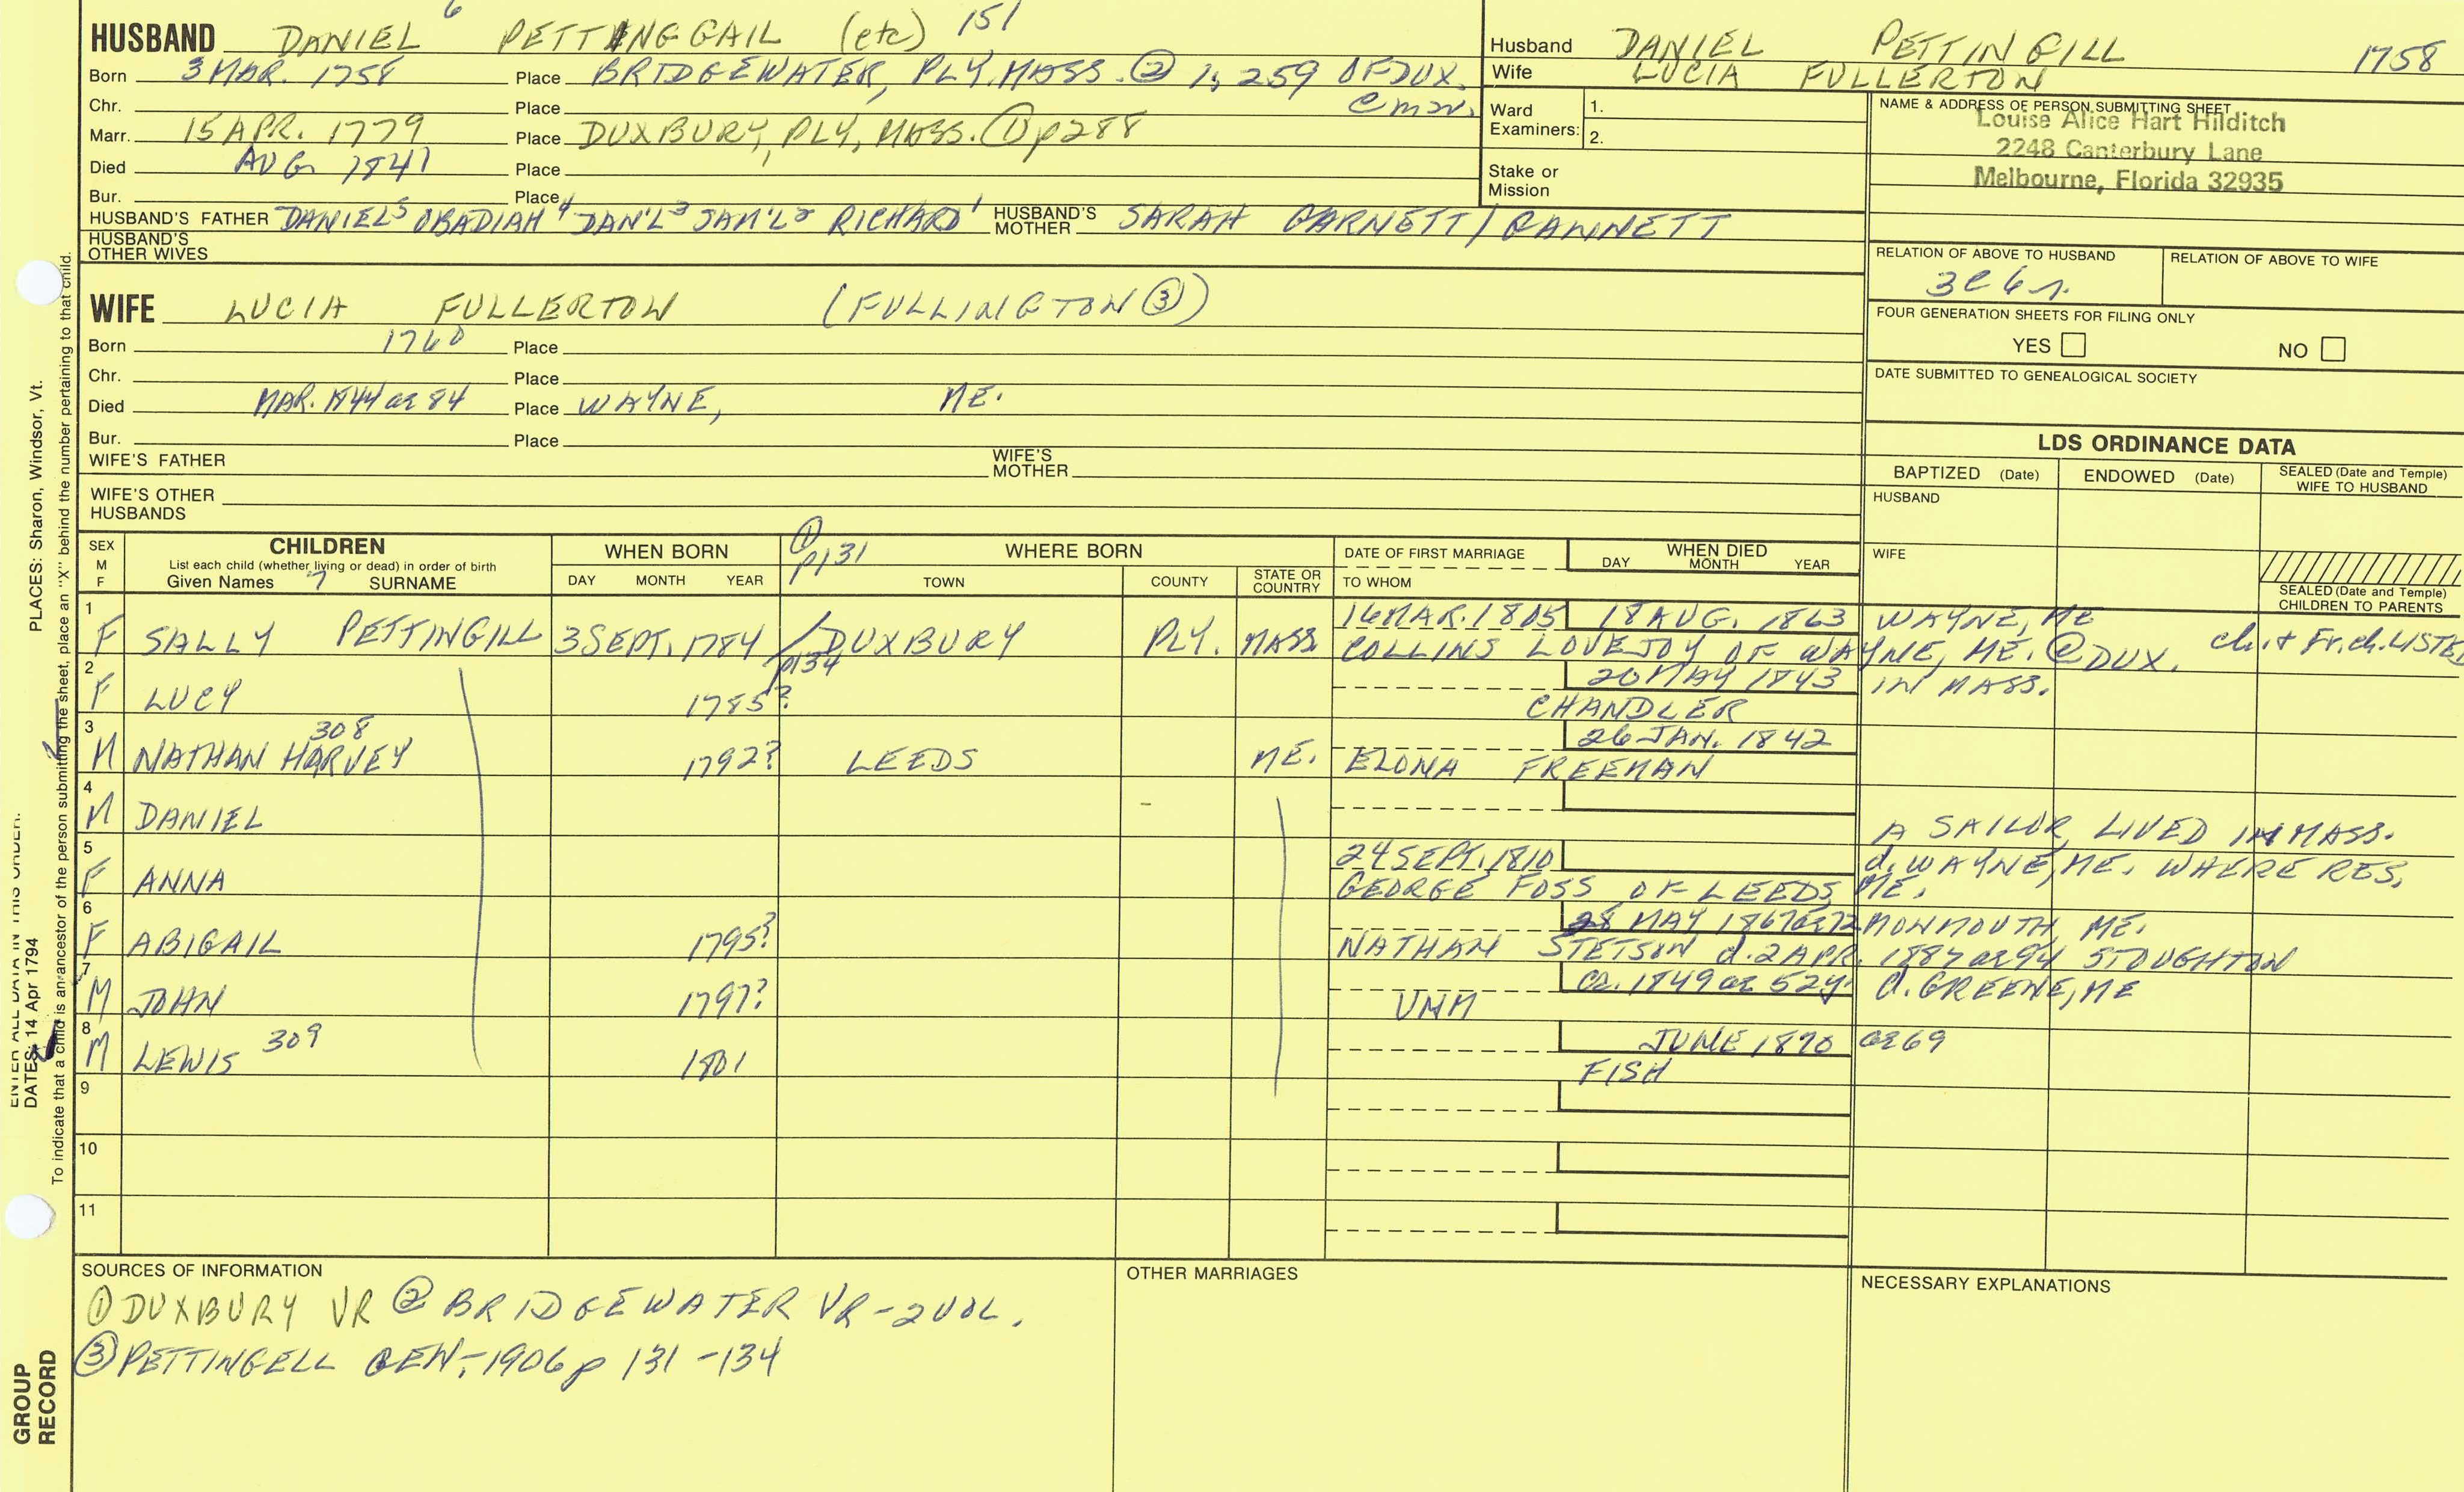 HUSBAND DANIEL 6 PETTINGGAIL (etc) 151
Born 3 MAR. 1758 Place BRIDGEWATER, PLY. MASS. ② 1, 259 OF DUX.
Chr. Place @ m
Marr. 15 APR. 1779 Place DUXBURY, PLY, MASS. ① p 288
Died AUG 1841 Place
Bur. Place
HUSBAND'S FATHER DANIEL5 OBADIAH4 DAN'L3 SAM'L2 RICHARD1 HUSBAND'S MOTHER SARAH GARNETT/GANNETT
HUSBAND'S OTHER WIVES
Husband DANIEL PETTINGILL 1758
Wife LUCIA FULLERTON
Ward Examiners: 1.
2.
Stake or Mission
NAME & ADDRESS OF PERSON SUBMITTING SHEET
Louise Alice Hart Hilditch
2248 Canterbury Lane
Melbourne, Florida 32935
RELATION OF ABOVE TO HUSBAND RELATION OF ABOVE TO WIFE
3C6r.
FOUR GENERATION SHEETS FOR FILING ONLY
YES NO
DATE SUBMITTED TO GENEALOGICAL SOCIETY
WIFE LUCIA FULLERTON (FULLINGTON ③)
Born 1760 Place
Chr. Place
Died MAR. 1844 ae 84 Place WAYNE, ME.
Bur. Place
WIFE'S FATHER WIFE'S MOTHER
WIFE'S OTHER HUSBANDS
LDS ORDINANCE DATA
BAPTIZED (Date) ENDOWED (Date) SEALED (Date and Temple) WIFE TO HUSBAND
HUSBAND
WIFE
SEALED (Date and Temple) CHILDREN TO PARENTS
SEX M F CHILDREN List each child (whether living or dead) in order of birth Given Names 7 SURNAME
WHEN BORN DAY MONTH YEAR
① p131 WHERE BORN TOWN COUNTY STATE OR COUNTRY
DATE OF FIRST MARRIAGE TO WHOM
WHEN DIED DAY MONTH YEAR
1 16 MAR. 1805 18 AUG. 1863 WAYNE, ME
F SALLY PETTINGILL 3 SEPT. 1784 DUXBURY PLY. MASS. COLLINS LOVEJOY OF WAYNE, ME. @ DUX. ch. + Fr. ch. LISTED
2 p134 20 MAY 1843 IN MASS.
F LUCY 1785? CHANDLER
3 308 26 JAN. 1842
M NATHAN HARVEY 1792? LEEDS ME. ELONA FREEMAN
4
M DANIEL A SAILOR, LIVED IN MASS.
5 24 SEPT. 1810 d. WAYNE, ME. WHERE RES.
F ANNA GEORGE FOSS OF LEEDS, ME.
6 28 MAY 1867 ae 72 MONMOUTH, ME.
F ABIGAIL 1795? NATHAN STETSON d. 2 APR. 1887 ae 94 STOUGHTON
7 ca. 1849 ae 52y. d. GREENE, ME
M JOHN 1797? UNM
8 JUNE 1870 ae 69
M LEWIS 309 1801 FISH
9
10
11
SOURCES OF INFORMATION OTHER MARRIAGES NECESSARY EXPLANATIONS
① DUXBURY VR ② BRIDGEWATER VR - 2 VOL.
③ PETTINGELL GEN, - 1906 p 131-134
ENTER ALL DATA IN THIS ORDER:
DATES: 14 Apr 1794 PLACES: Sharon, Windsor, Vt.
To indicate that a child is an ancestor of the person submitting the sheet, place an "X" behind the number pertaining to that child.
GROUP RECORD